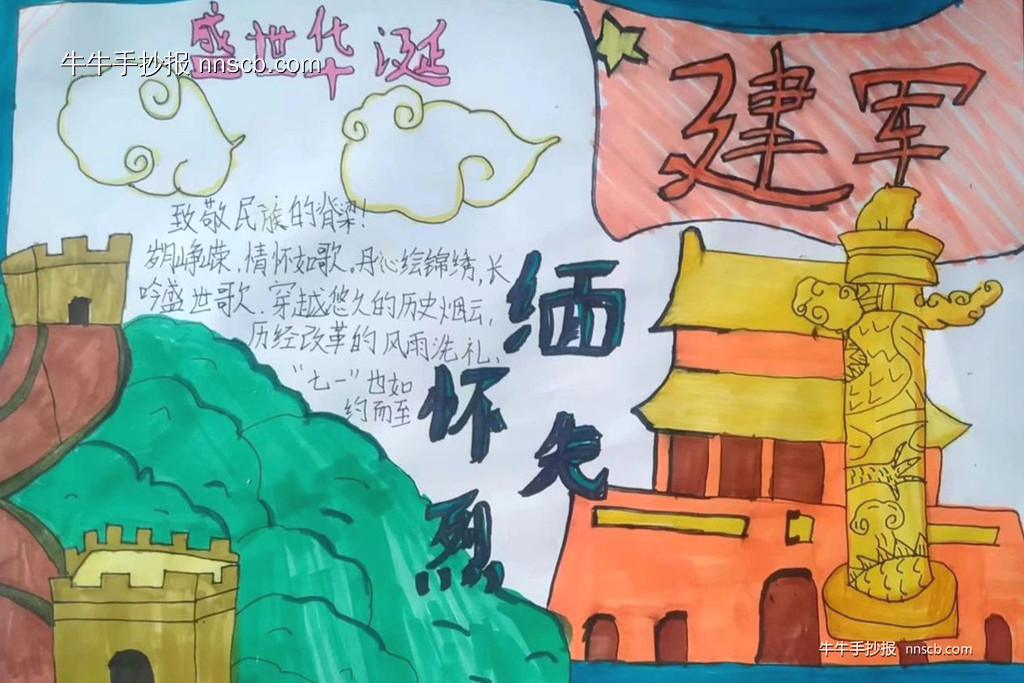 盛世华诞
牛牛手抄报 nnscb.com
建军
致敬民族的脊梁!
岁月峥嵘,情怀如歌。丹心绘锦绣,长
吟盛世歌.穿越悠久的历史烟云,
历经改革的风雨洗礼、
"七一"也如
约而至
缅
怀
先
烈
牛牛手抄报 nnscb.com